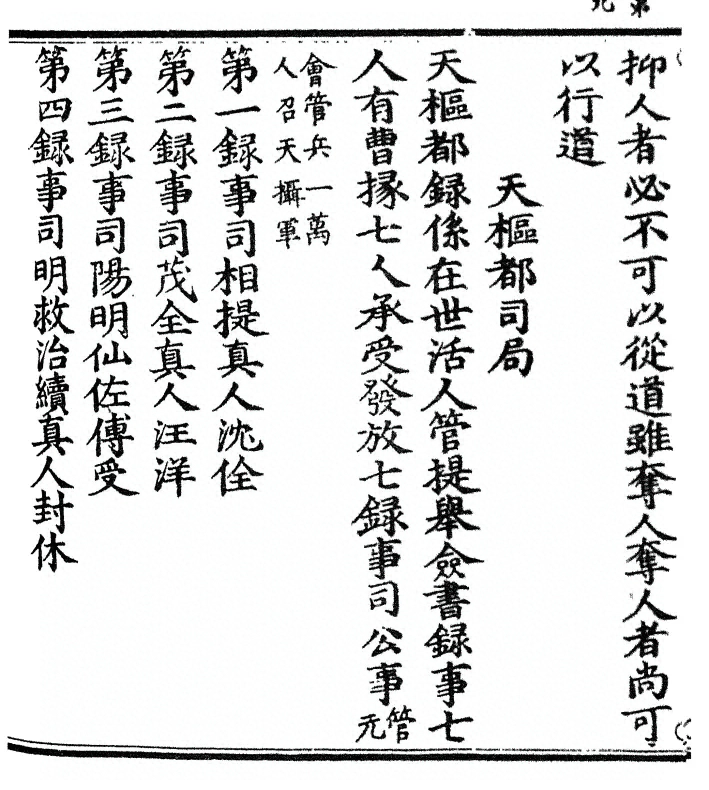 抑人者必不可以從道雖奪人奪人者尚可
以行道
天樞都司局
天樞都録係在世活人管提舉僉書録事七
人有曹掾七人承受發放七録事司公事管
元
會管兵一萬
人召天攝軍
第一録事司相提真人沈佺
第二録事司茂全真人汪洋
第三録事司陽明仙佐傅受
第四録事司明救治續真人封休